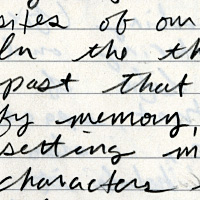 sites of our
In the th
past that
by memory,
setting m
characters